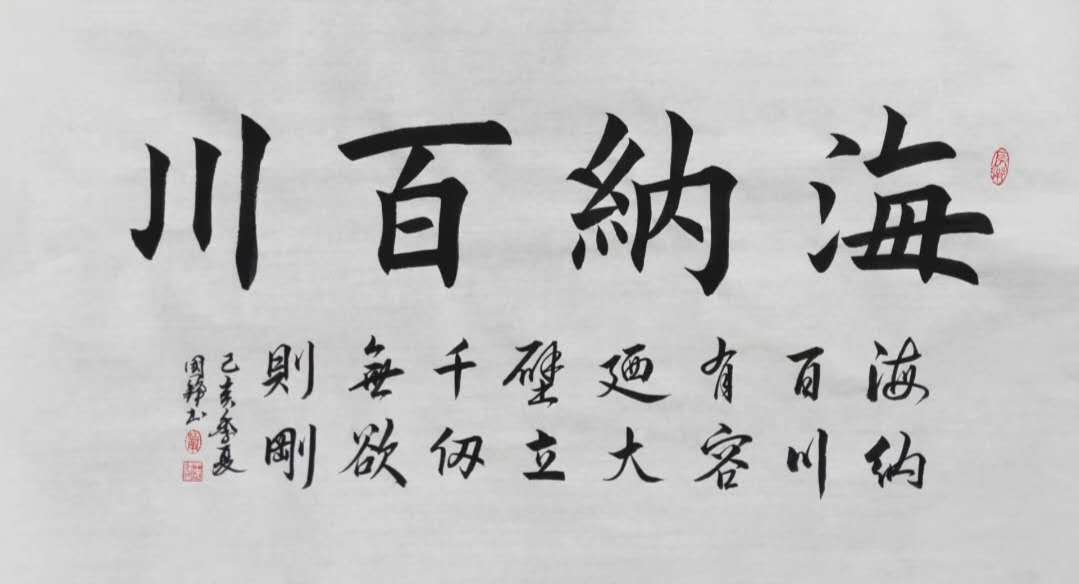 海納百川
海納
百川
有容
廼大
壁立
千仞
無欲
則剛
己亥季夏
国静书